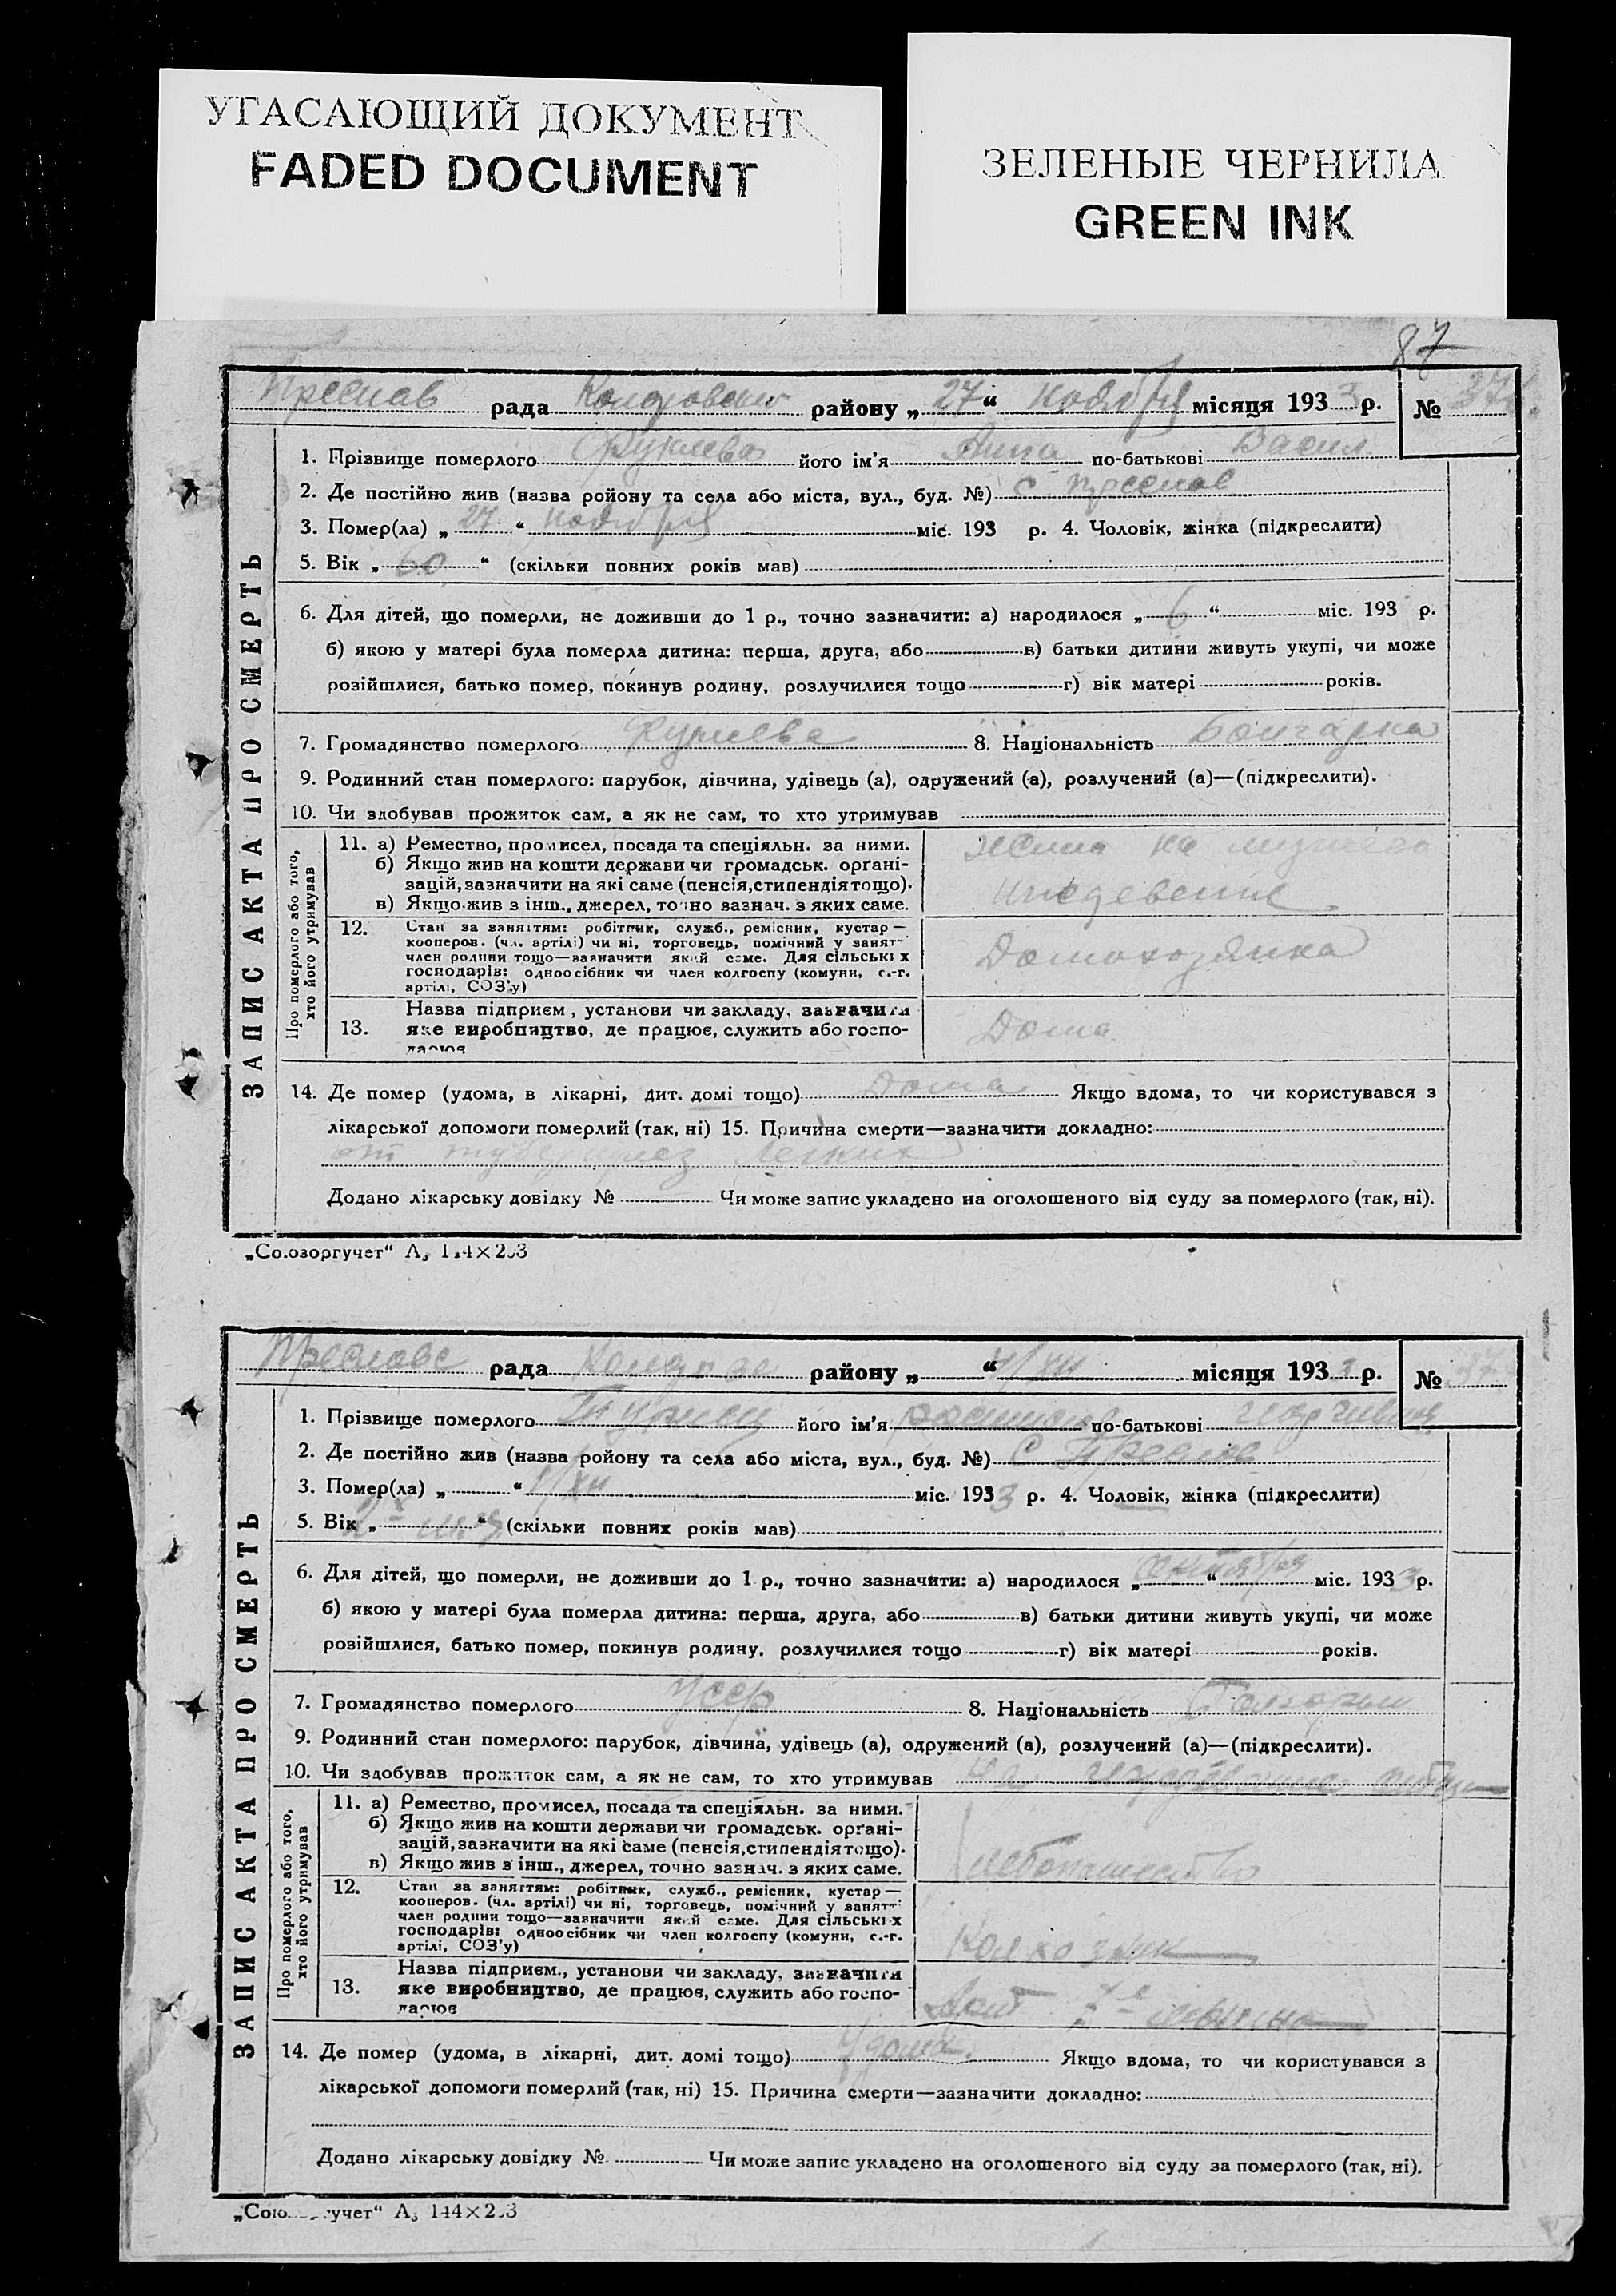 УГАСАЮЩИЙ ДОКУМЕНТ
FADED DOCUMENT
ЗЕЛЕНЫЕ ЧЕРНИЛА
GREEN INK
87
Преслав рада район у „ 27 “ ноября місяця 1933 р. №
ЗАПИС АКТА ПРО СМЕРТЬ
1. Прізвище померлого його ім'я Анна по-батькові Васил.
2. Де постійно жив (назва ройону та села або міста, вул., буд. №) с Преслав
3. Помер(ла) „ 27 “ ноября міс. 193 р. 4. Чоловік, жінка (підкреслити)
5. Вік „ 60 “ (скільки повних років мав)
6. Для дітей, що померли, не доживши до 1 р., точно зазначити: а) народилося „ 6 “ міс. 193 р.
б) якою у матері була померла дитина: перша, друга, або в) батьки дитини живуть укупі, чи може
розійшлися, батько помер, покинув родину, розлучилися тощо г) вік матері років.
7. Громадянство померлого 8. Національність Болгарка
9. Родинний стан померлого: парубок, дівчина, удівець (а), одружений (а), розлучений (а)—(підкреслити).
10. Чи здобував прожиток сам, а як не сам, то хто утримував
Про померлого або того, хто його утримував
11. а) Ремество, промисел, посада та спеціяльн. за ними.
б) Якщо жив на кошти держави чи громадськ. орґані-
зацій, зазначити на які саме (пенсія, стипендія тощо).
в) Якщо жив з інш., джерел, точно зазнач. з яких саме.
на
12. Стан за заняттям: робітник, служб., ремісник, кустар—
кооперов. (чл. артілі) чи ні, торговець, помічний у занят-
член родини тощо—зазначити який саме. Для сільських
господарів: одноосібник чи член колгоспу (комуни, с.-г.
артілі, СОЗ'у)
Домохозяйка
13. Назва підприєм., установи чи закладу, зазначити
яке виробництво, де працює, служить або госпо-
дарює
Дома
14. Де помер (удома, в лікарні, дит. домі тощо) Дома Якщо вдома, то чи користувався з
лікарської допомоги померлий (так, ні) 15. Причина смерти—зазначити докладно:
от туберкулез легких
Додано лікарську довідку № Чи може запис укладено на оголошеного від суду за померлого (так, ні).
„Союзоргучет“ А₅ 144×203
рада району „ “ 4/XII місяця 1933 р. №
ЗАПИС АКТА ПРО СМЕРТЬ
1. Прізвище померлого його ім'я по-батькові
2. Де постійно жив (назва ройону та села або міста, вул., буд. №) с Преслав
3. Помер(ла) „ “ 4/XII міс. 1933 р. 4. Чоловік, жінка (підкреслити)
5. Вік „ “ (скільки повних років мав)
6. Для дітей, що померли, не доживши до 1 р., точно зазначити: а) народилося „ октября “ міс. 1933 р.
б) якою у матері була померла дитина: перша, друга, або в) батьки дитини живуть укупі, чи може
розійшлися, батько помер, покинув родину, розлучилися тощо г) вік матері років.
7. Громадянство померлого Усср 8. Національність
9. Родинний стан померлого: парубок, дівчина, удівець (а), одружений (а), розлучений (а)—(підкреслити).
10. Чи здобував прожиток сам, а як не сам, то хто утримував На
Про померлого або того, хто його утримував
11. а) Ремество, промисел, посада та спеціяльн. за ними.
б) Якщо жив на кошти держави чи громадськ. орґані-
зацій, зазначити на які саме (пенсія, стипендія тощо).
в) Якщо жив з інш., джерел, точно зазнач. з яких саме.
12. Стан за заняттям: робітник, служб., ремісник, кустар—
кооперов. (чл. артілі) чи ні, торговець, помічний у занят-
член родини тощо—зазначити який саме. Для сільських
господарів: одноосібник чи член колгоспу (комуни, с.-г.
артілі, СОЗ'у)
Колхозник
13. Назва підприєм., установи чи закладу, зазначити
яке виробництво, де працює, служить або госпо-
дарює
14. Де помер (удома, в лікарні, дит. домі тощо) Удома. Якщо вдома, то чи користувався з
лікарської допомоги померлий (так, ні) 15. Причина смерти—зазначити докладно:
Додано лікарську довідку № Чи може запис укладено на оголошеного від суду за померлого (так, ні).
„Союзоргучет“ А₅ 144×203